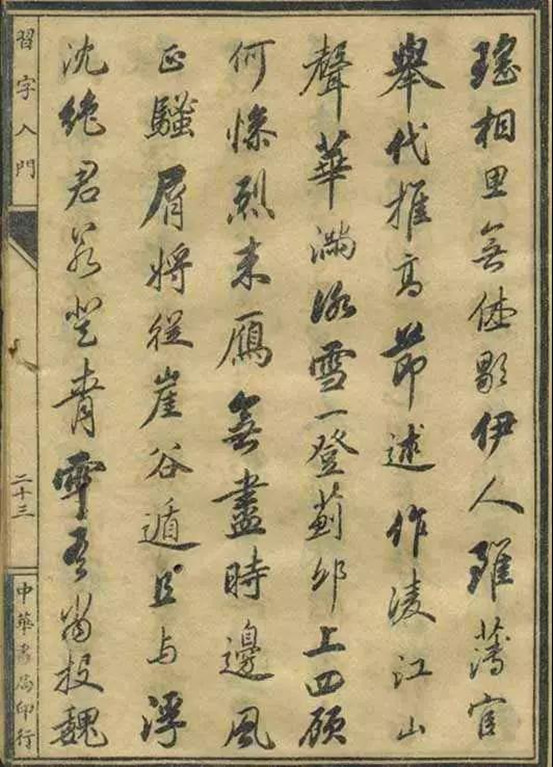 瑤相思無休歇伊人雖薄宦
舉代推高節述作淩江山
聲華滿冰雪一登薊邱上四顧
何慘烈来鴈無盡時邊風
正騷屑將從崖谷遁且与浮
沈絶君若登青雲吾當投魏
習字入門
二十三
中華書局印行